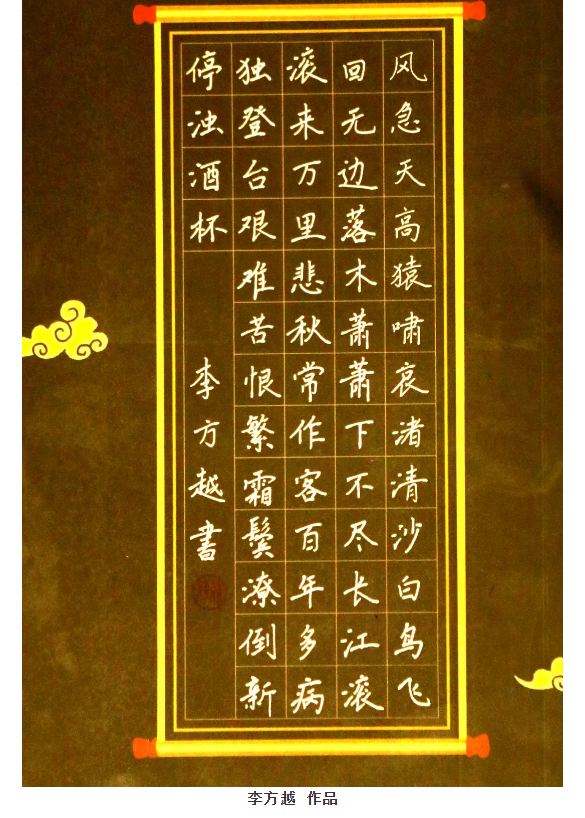 风急天高猿啸哀渚清沙白鸟飞
回无边落木萧萧下不尽长江滚
滚来万里悲秋常作客百年多病
独登台艰难苦恨繁霜鬓潦倒新
停浊酒杯
李方越书
李方越 作品